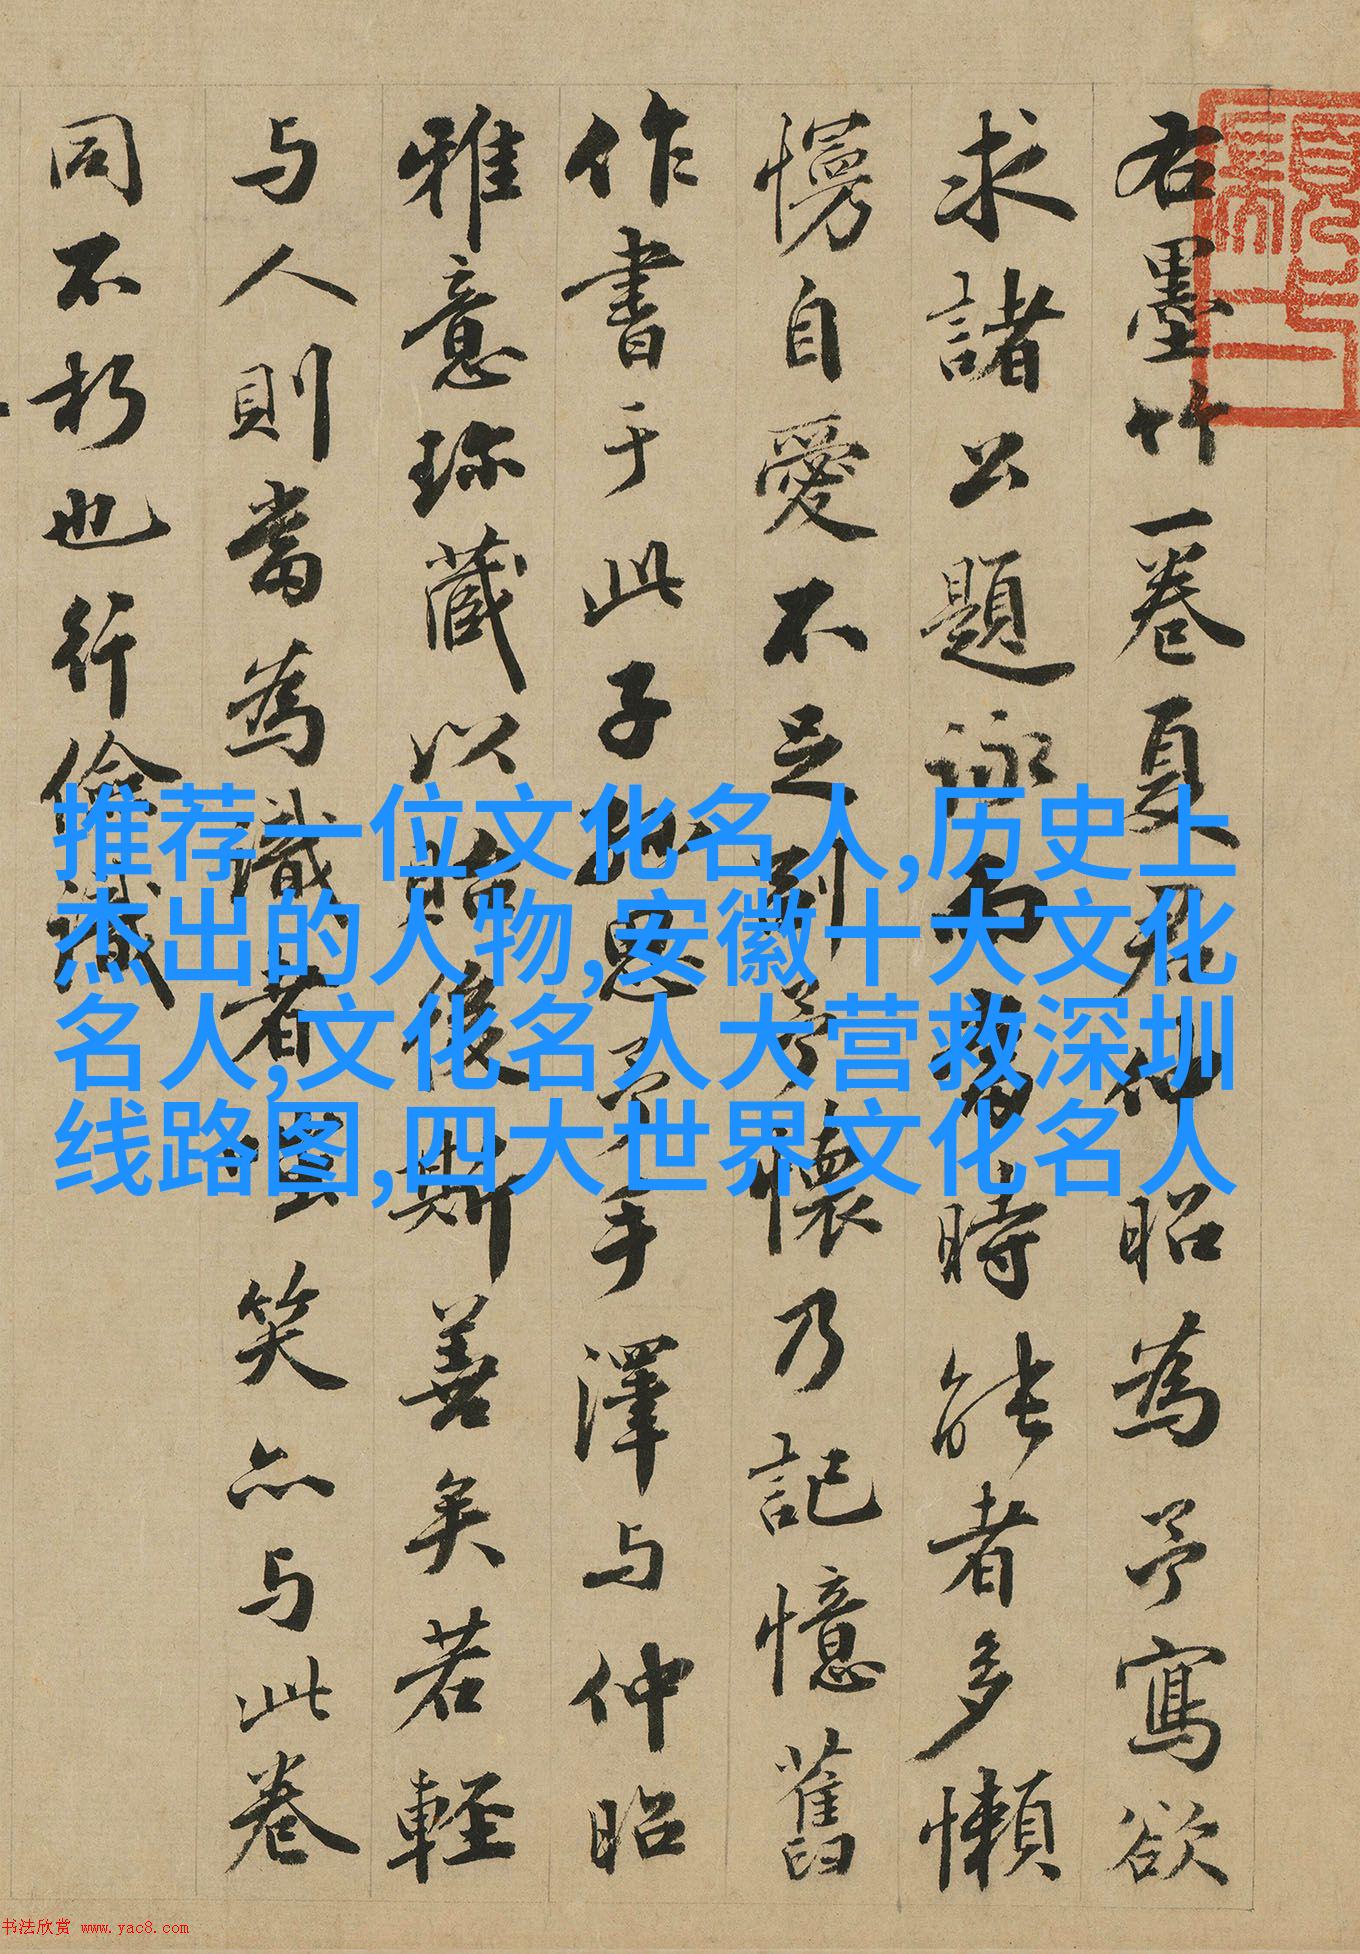 右墨竹一卷夏君仲昭為予寫欲
求諸公題詠而當時能者多懶
慢自愛不足副予懷乃記憶舊
作書于此子孫思予手澤与仲昭
雅意珎藏以貽後斯善矣若輕
与人則當為識者嗤笑亦与此卷
同不朽也行儉識
推荐一位文化名人,历史上
杰出的人物,安徽十大文化
名人,文化名人大营救深圳
线路图,四大世界文化名人
书法欣赏 www.yac8.com